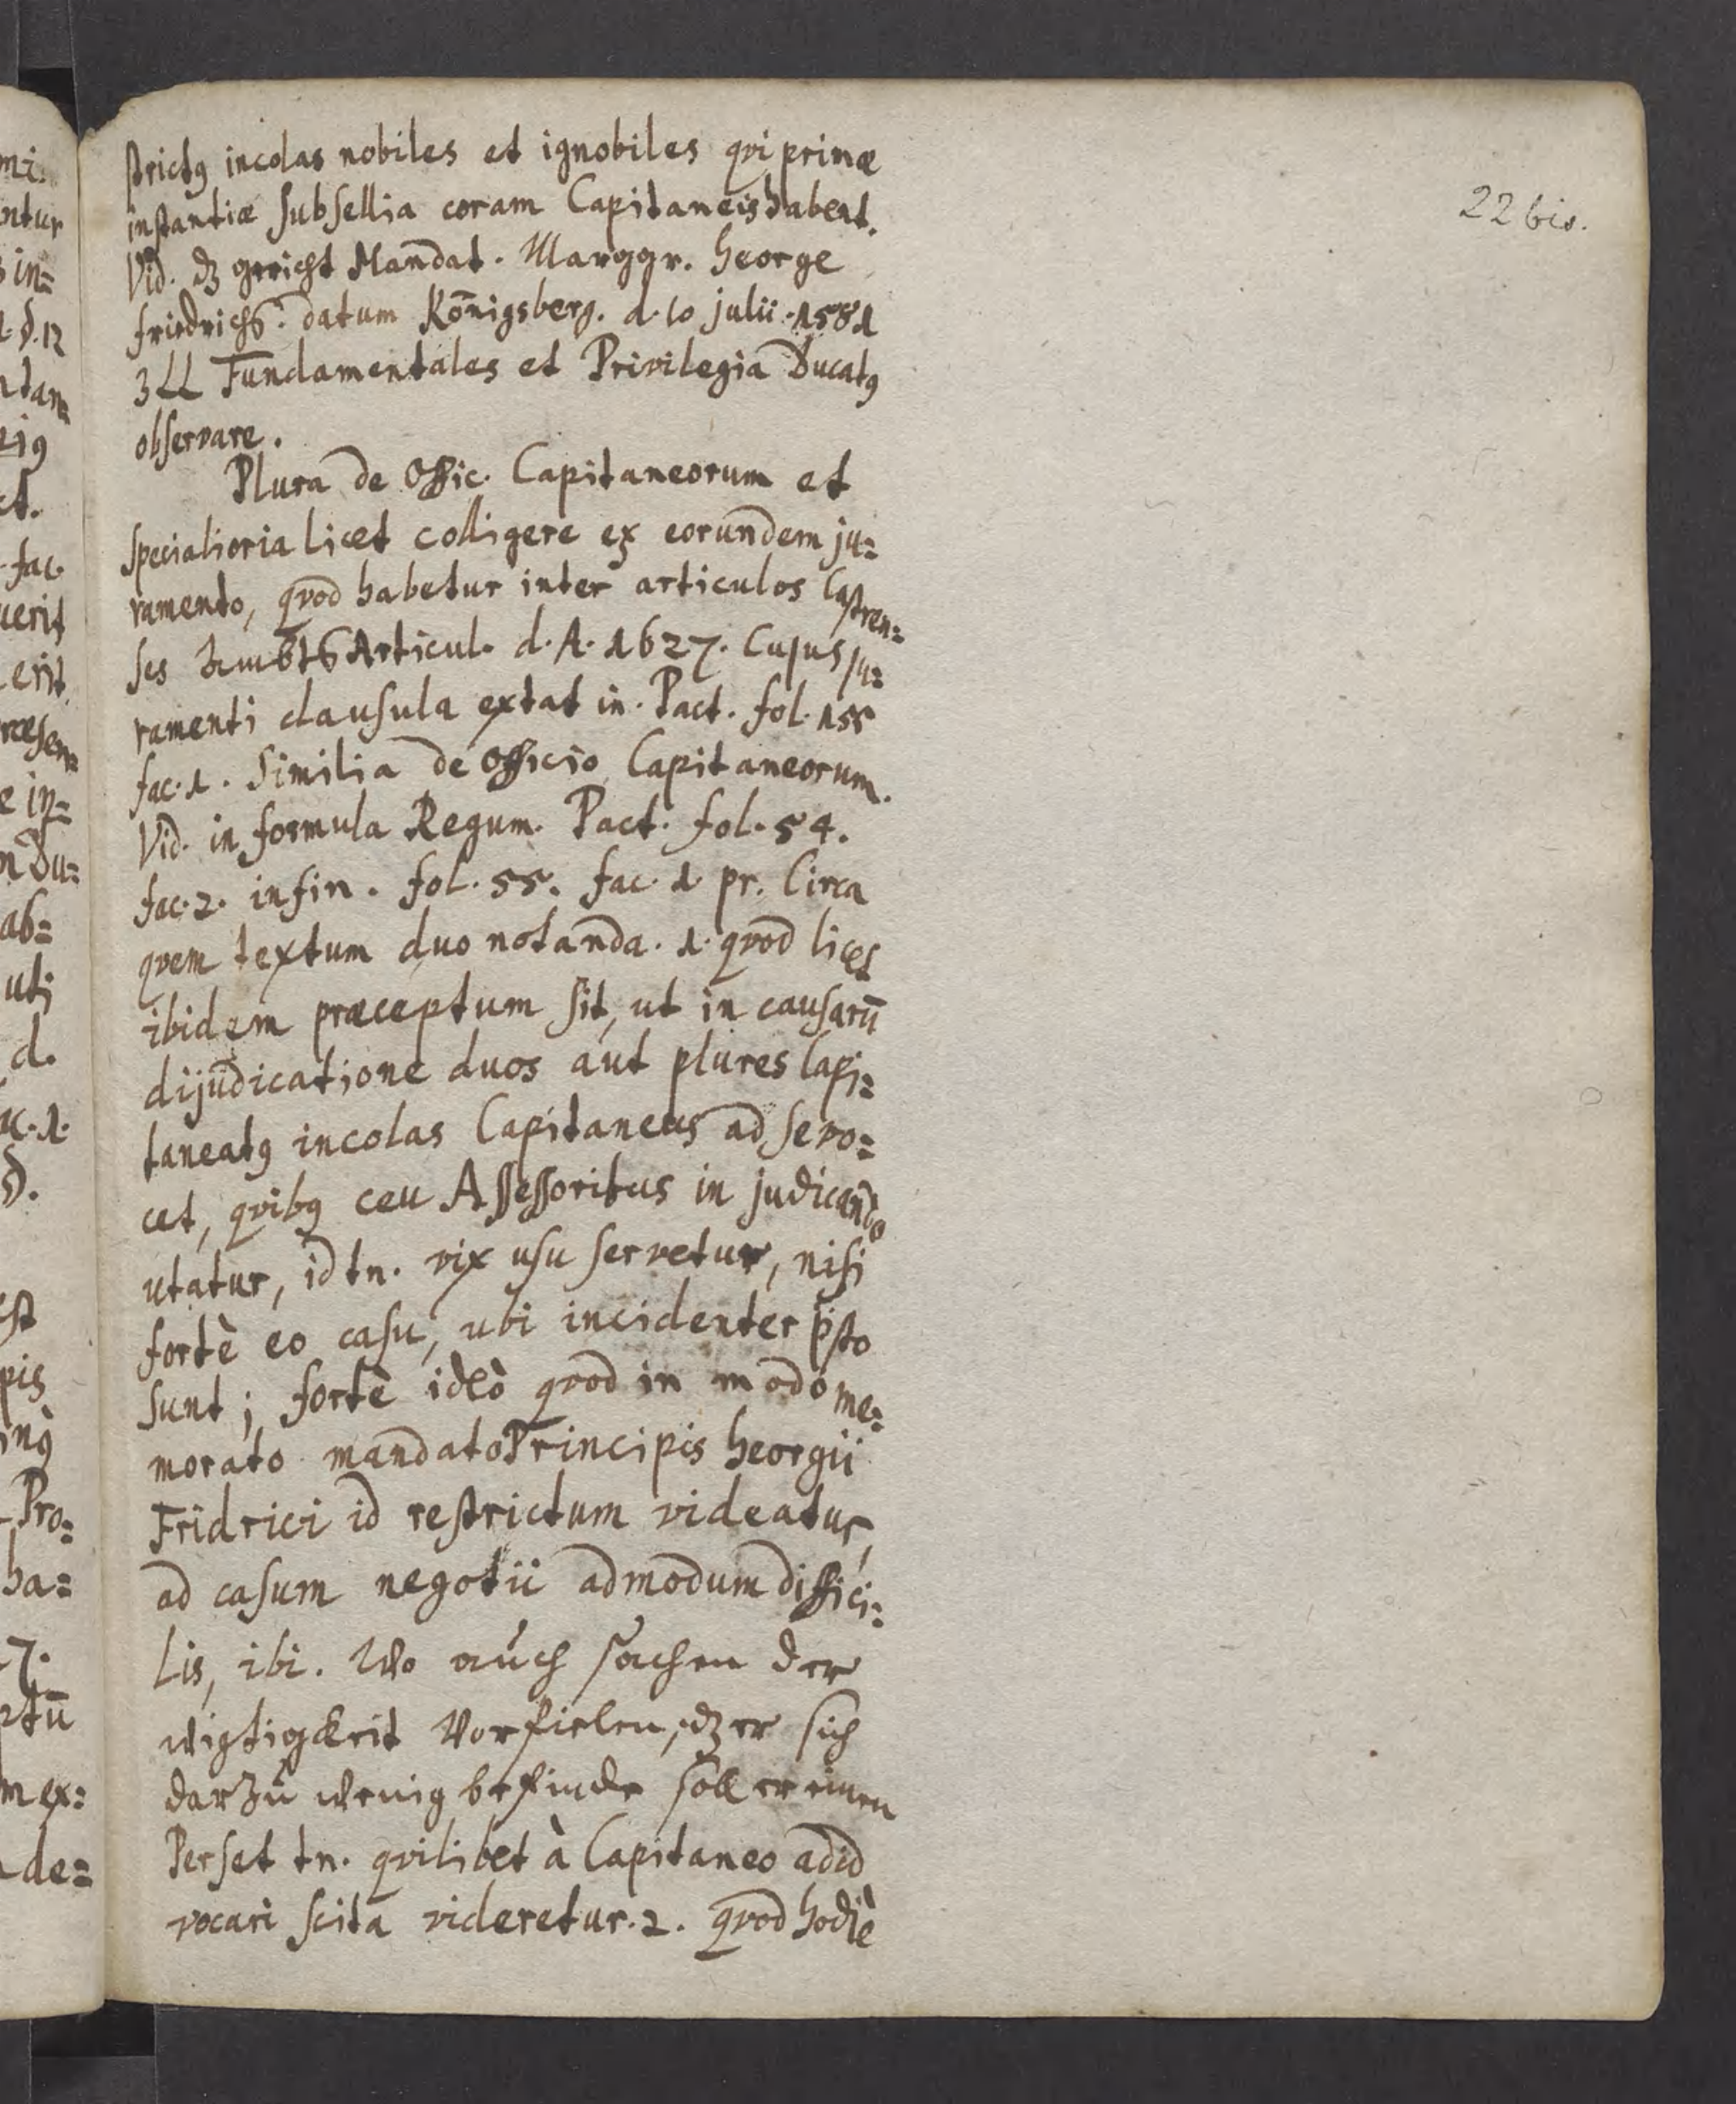 22 bis.
strictꝰ incolas nobiles et ignobiles qvi primæ
instantiæ subsellia coram Capitaneis habent.
Vid. dz gericht Mandat. Marggr. George
friedrichs. datum Königsberg. d. 10 julii. 1581
3 LL Fundamentales et Privilegia Ducatꝰ
observare.
Plura de Offic. Capitaneorum et
specialioria licet colligere ex eorundem ju=
ramento, qvod habetur inter articulos Castren=
ses Ambts Articul. d. A. 1627. Cujus ju=
ramenti clausula extat in. Pact. fol. 155
fac. 1. Similia de Officio Capitaneorum.
Vid. in formula Regum. Pact. fol. 54.
fac. 2. in fin. fol. 55. fac. 1 pr. Circa
qvem textum duo notanda. 1. qvod licet
ibidem præceptum sit, ut in causarū
dijudicatione duos aut plures Capi=
taneatꝰ incolas Capitaneus ad se vo=
cet, qvibꝰ ceu Assessoribus in judicando
utatur, id tn. vix usu servetur, nisi
fortè eo casu, ubi incidenter p̄sto
sunt; fortè ideò qvod in modo me=
morato mandato Principis Georgii
Fridrici id restrictum videatur,
ad casum negotii admodum diffici=
lis, ibi. Wo auch sachen der
wigtigkeit Vorfielen, dz er sich
darzu wenig befinde soll er einen
Perset tn. qvilibet à Capitaneo ad id
vocari scita videretur. 2. qvod hodiè
mi.
ntur
in=
d. 12
ndam=
ct.
fac.
uerit
erit
e in=
n Du=
ab=
uti
d.
ac. 1.
est
pis
Pro=
ha=
7.
rtū
m ex=
de=